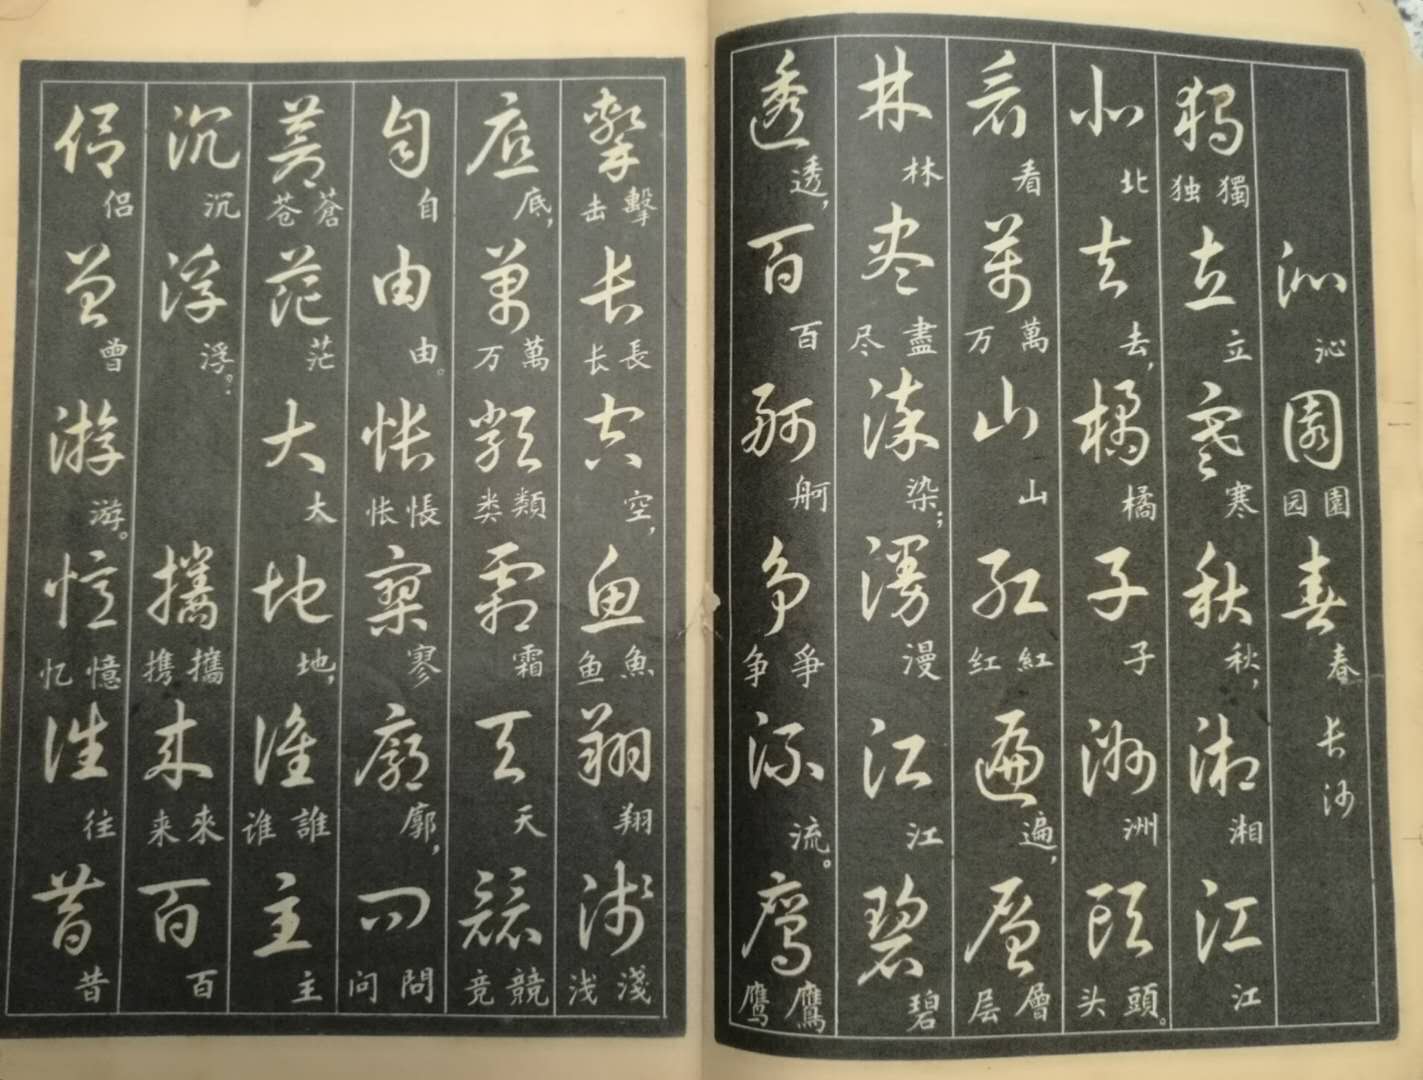 沁 沁 園 園 园 春 春 长沙
獨 獨 独 立 立 寒 寒 秋 秋, 湘 湘 江 江
北 北 去 去, 橘 橘 子 子 洲 洲 頭 頭。 头
看 看 萬 萬 万 山 山 紅 紅 红 遍 遍, 層 層 层
林 林 盡 盡 尽 染 染; 漫 漫 江 江 碧 碧
透 透, 百 百 舸 舸 争 爭 争 流 流。 鹰 鷹 鹰
擊 擊 击 长 長 长 空 空, 鱼 魚 鱼 翔 翔 淺 淺 浅
底 底, 萬 萬 万 類 類 类 霜 霜 天 天 競 競 竞
自 自 由 由。 怅 悵 怅 寥 寥 廓 廓, 问 問 问
蒼 蒼 苍 茫 茫 大 大 地 地, 谁 誰 谁 主 主
沉 沉 浮 浮。: 攜 攜 携 来 來 来 百 百
侣 侣 曾 曾 游 游。 憶 憶 忆 往 往 昔 昔